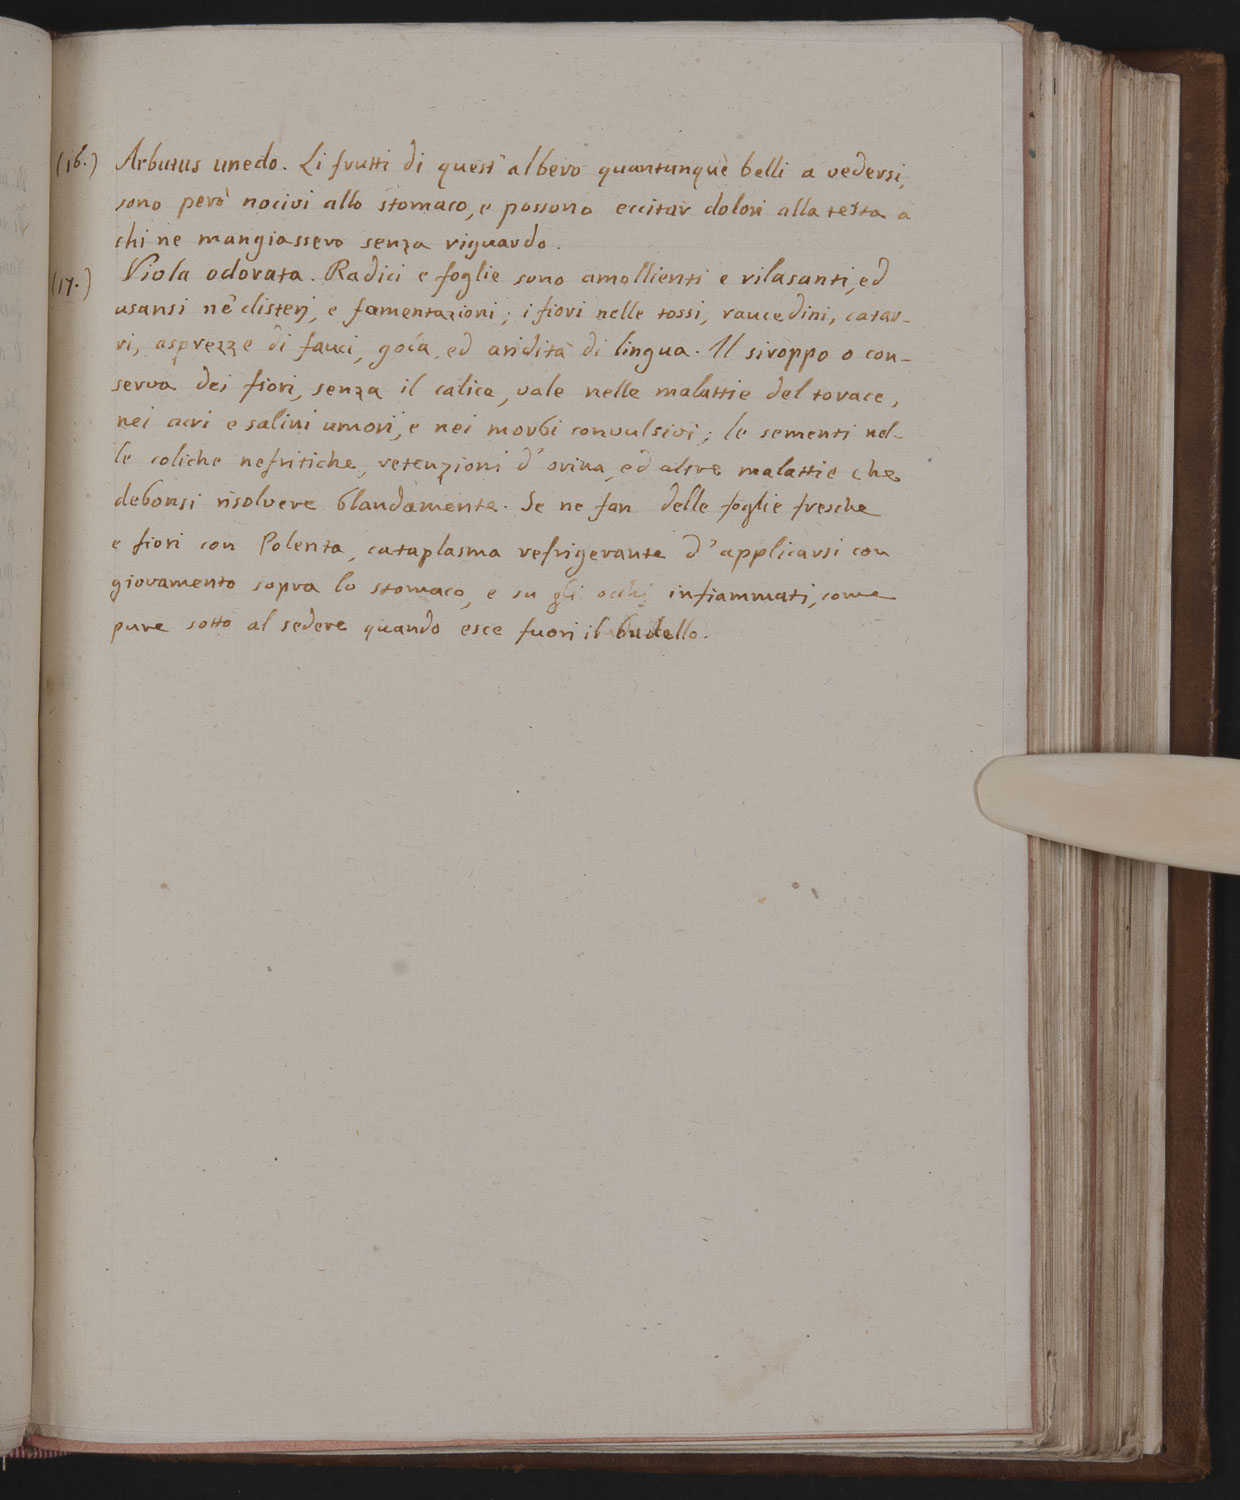 (16.) Arbutus unedo. Li frutti di quest'albero quantunque belli a vedersi,
sono però nocivi allo stomaco, e possono eccitar dolori alla testa a
chi ne mangiassero senza riguardo.
(17.) Viola odorata. Radici e foglie sono amollienti e rilasanti, ed
usansi ne' clisterj, e famentazioni; i fiori nelle tossi, raucedini, catar-
ri, asprezze di fauci, gola, ed aridità di lingua. Il siroppo o con-
serva dei fiori, senza il calice, vale nelle malattie del torace,
nei acri e salini umori, e nei morbi convulsivi; le sementi nel-
le coliche nefritiche, retenzioni d'orina, ed altre malattie che
debonsi risolvere blandamente. Se ne fan delle foglie fresche
e fiori con Polenta, cataplasma refrigerante d'applicarsi con
giovamento sopra lo stomaco, e su gli occhj infiammati, come
pure sotto al sedere quando esce fuori il budello.